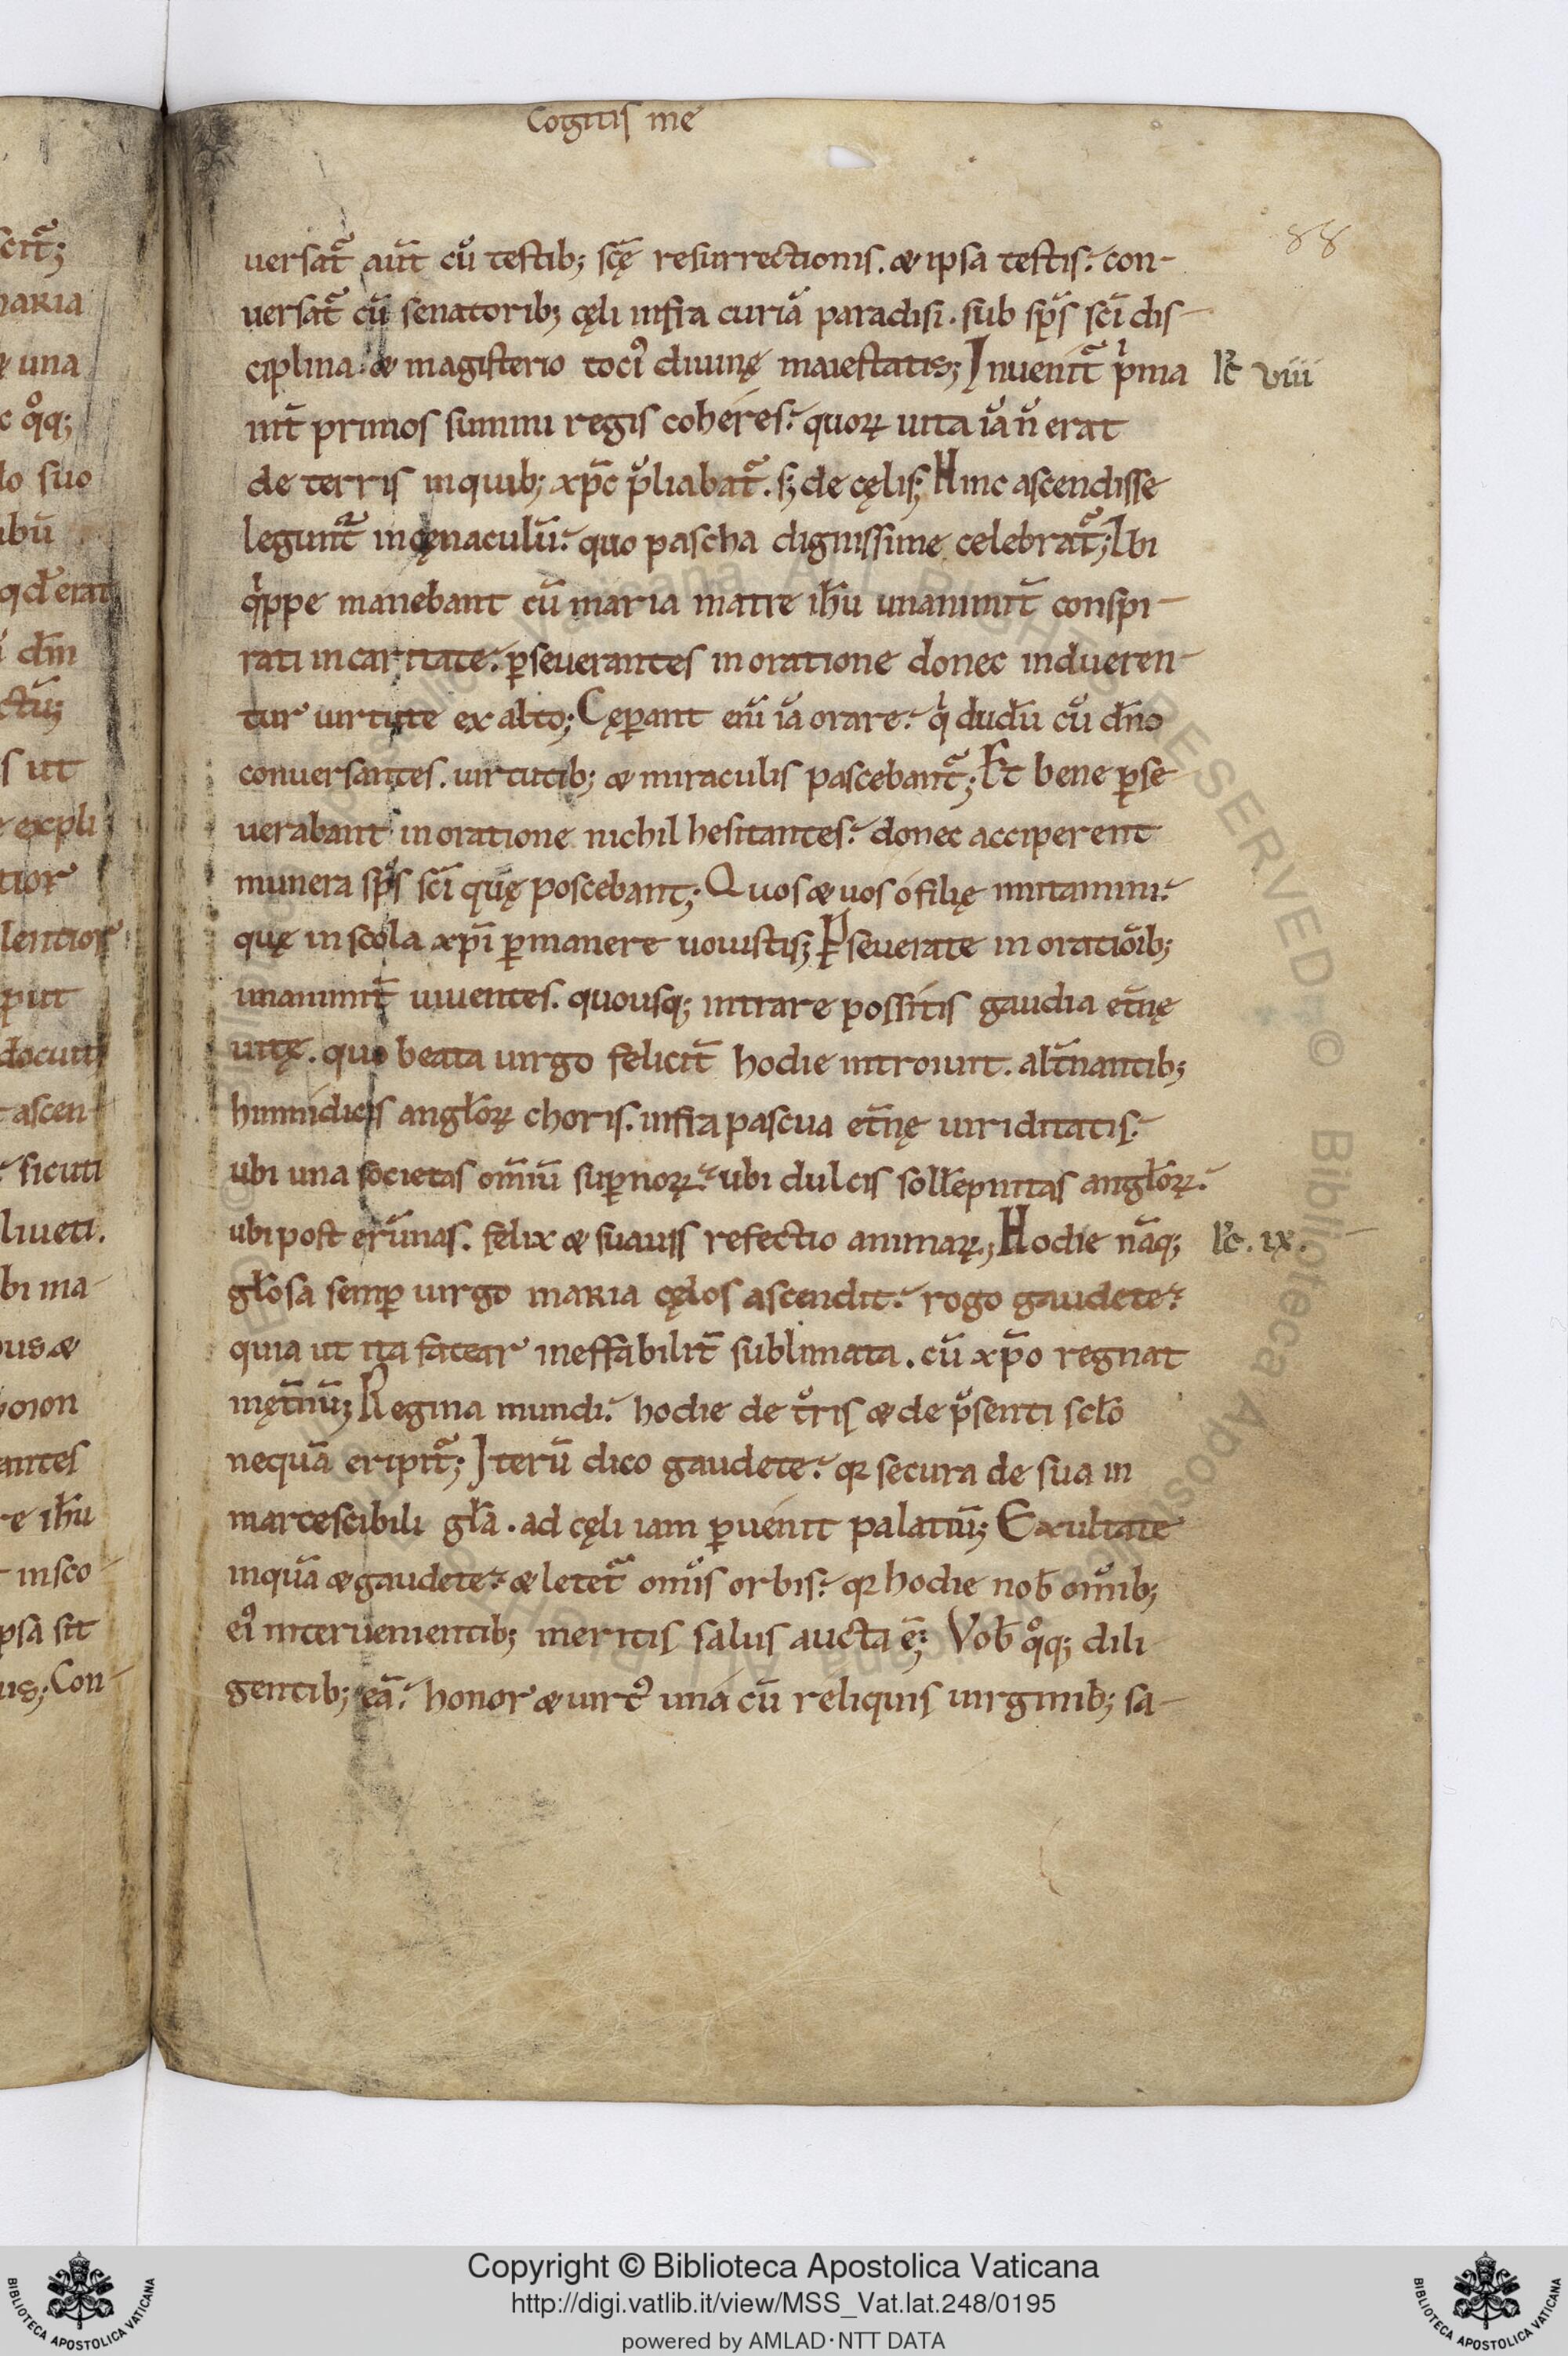 Cogitis me
88
uersat᷑ aut̄ cū testib; scę̄ resurrectionis. & ipsa testis. con-
uersat᷑ cū senatorib; cęli infra curiā paradisi. sub sp̄s sc̄i dis-
ciplina. & magisterio toci᷒ diuinę maiestatis; Inuenit᷑ pͥma
lc̄ viii
nit̄ primos summi regis coheres. quoꝝ uita iā n̄ erat
de terris in quib; xp̄c p̄liabat᷑. s; de cęlis; Hinc ascendisse
legunt᷑ in cęnaculū. quo pascha dignissime celebrat᷑; Ibi
qͥppe manebant cū maria matre ih̄u unanimit̄ conspi-
rati in caritate. ꝑseuerantes in oratione donec indueren-
tur uirtute ex alto; Cęꝑant eni̅ iā orare. qͥ dudū cū dn̄o
conuersantes. uirtutib; & miraculis pascebant᷑; Et bene ꝑse
uerabant in oratione nichil hesitantes. donec acciperent
munera sp̄s sc̄i quę poscebant; Quos & uos o filię imitamini.
quę in scola xp̄i ꝑmanere uouistis; Ꝑseuerate in oratiōib;
unanimit̄ uiuentes. quousq; intrare possitis gaudia et̄nę
uitę. quo beata uirgo felicit̄ hodie introiuit. alt̄nantib;
himnidicis angl̄oꝝ choris. infra pascua et̄nę uiriditatis.
ubi una societas om̄iū suꝑnoꝝ. ubi dulcis soll̄epnitas angl̄oꝝ.
ubi post erūnas. felix & suauis refectio animaꝝ; Hodie nāq;
lc̄. ix.
gl̄osa semꝑ uirgo maria cęlos ascendit. rogo gaudete.
quia ut ita fatear ineffabilit̄ sublimata. cū xp̄o regnat
inęt̄nū; Regina mundi. hodie de t̄ris & de p̄senti scl̄o
nequā eripit᷑; Iterū dico gaudete. qꝛ secura de sua in
marcescibili gl̄a. ad cęli iam ꝑuenit palatiū; Exultate
inquā & gaudete. & letet᷑ om̄is orbis. qꝛ hodie nob̄ om̄ib;
ei᷒ interuenientib; meritis salus aucta ē; Vob̄ qͦq; dili
gentib; eā. honor & uirt᷒ una cū reliquis uirginib; sa-
Copyright © Biblioteca Apostolica Vaticana
http://digi.vatlib.it/view/MSS_Vat.lat.248/0195
powered by AMLAD·NTT DATA
BIBLIOTECA APOSTOLICA VATICANA
BIBLIOTECA APOSTOLICA VATICANA